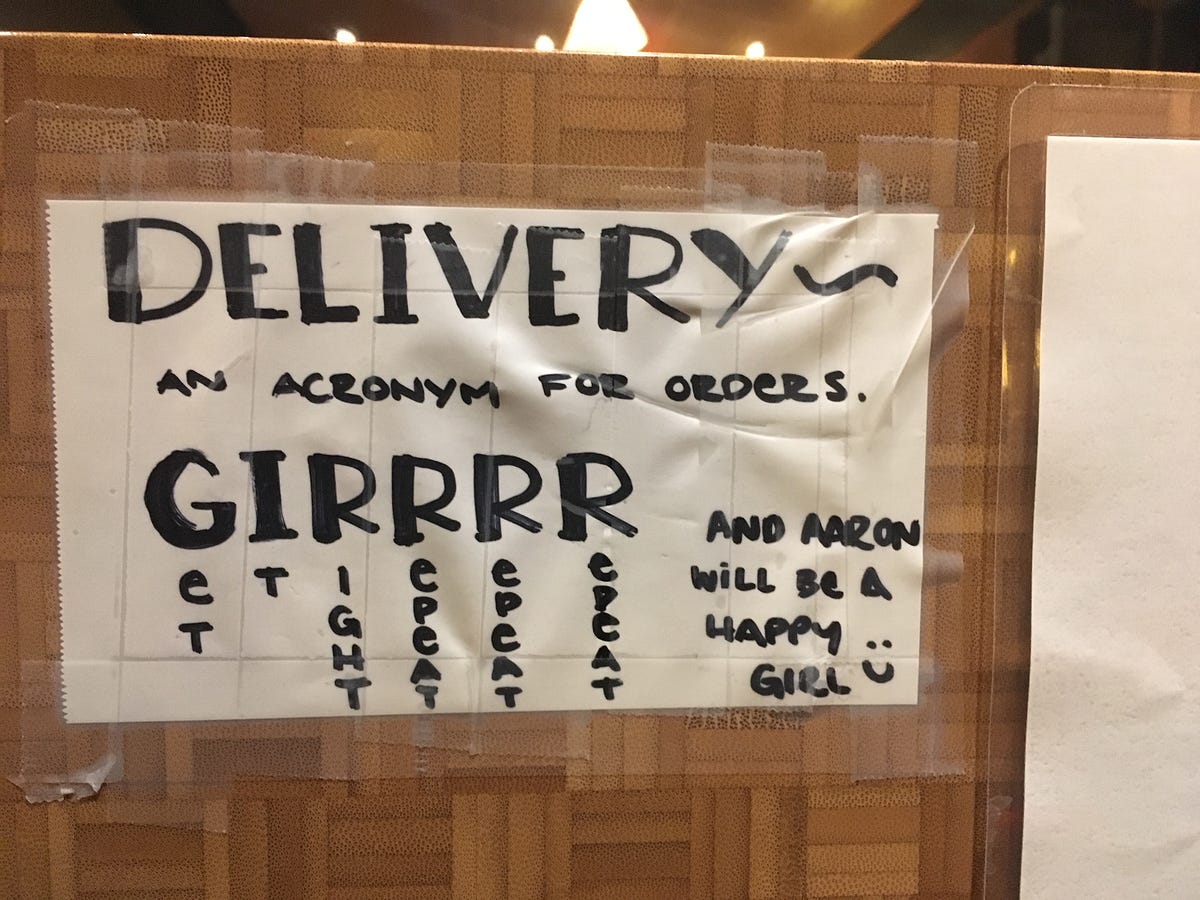 DELIVERY~
AN ACRONYM FOR ORDERS.
GIRRRR
eT
T
IGHT
ePeAT
ePeAT
ePeAT
AND AARON
WILL Be A
HAPPY
GIRL :)